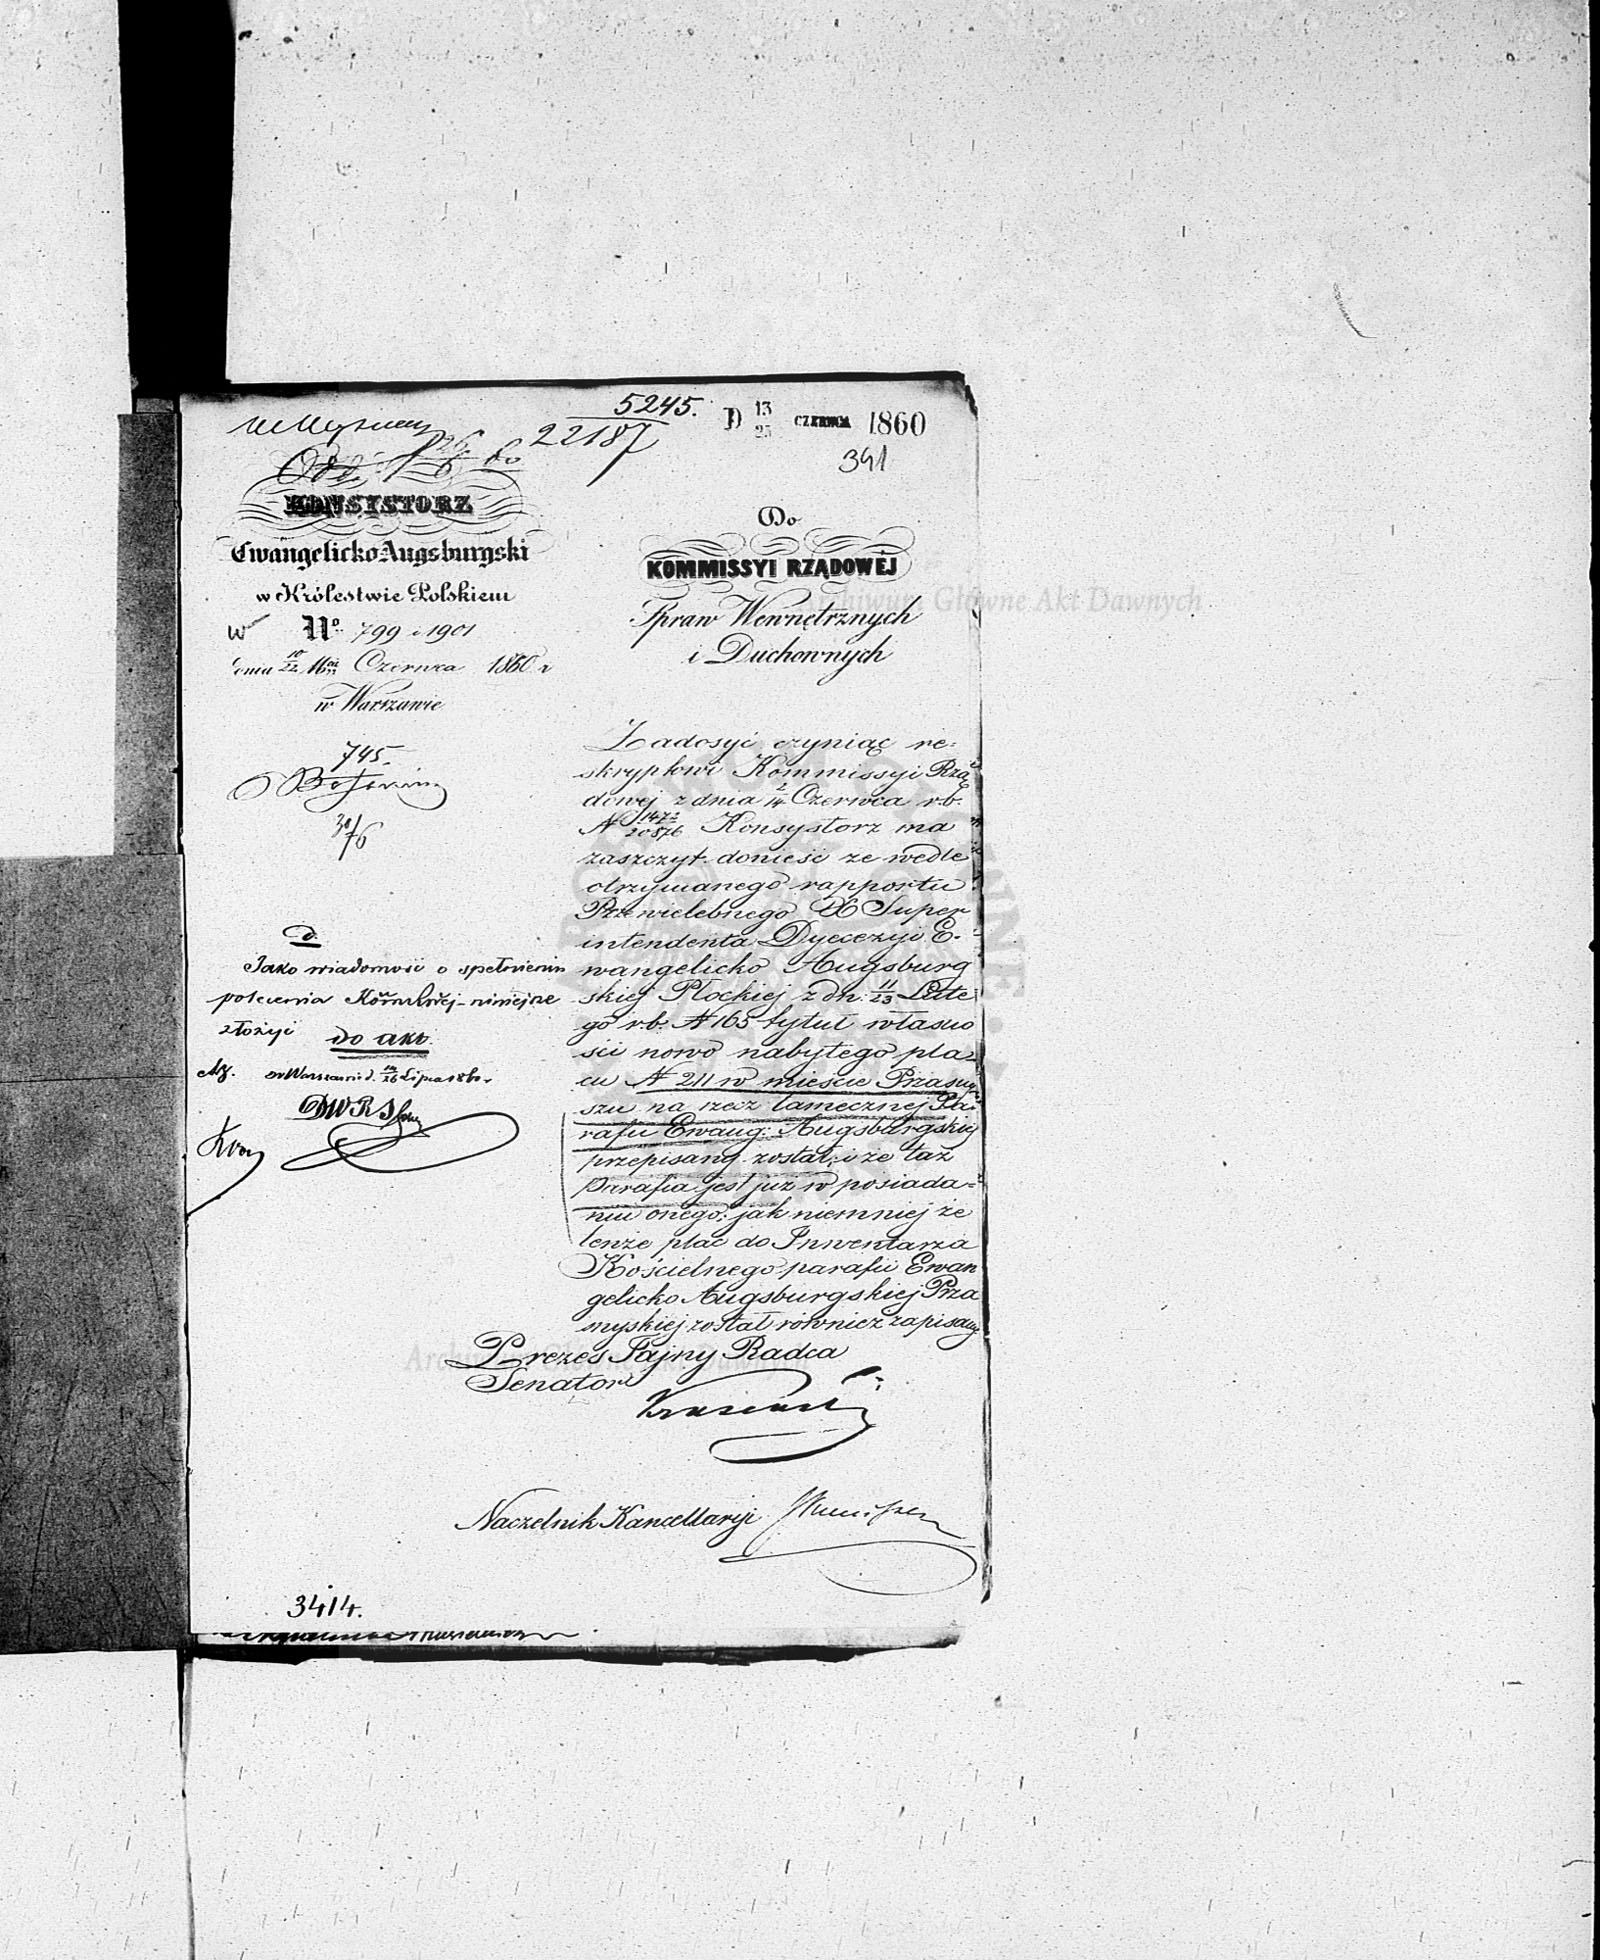 5245.
22187
D 13/25 CZERWCA 1860
391
KONSYSTORZ
Ewangelicko-Augsburgski
w Królestwie Polskiem
No 799 i 1901
dnia 10/22 Czerwca 1860 r
w Warszawie
745.
30/6
Do
KOMMISSYI RZĄDOWEJ
Spraw Wewnętrznych
i Duchownych
Zadosyć czyniąc re-
skryptowi Kommissyi Rzą
dowej z dnia 2/14 Czerwca r.b.
N 1472/20876 Konsystorz ma
zaszczyt donieść że wedle
otrzymanego rapportu
Przewielebnego X Super
intendenta Dyecezyi E-
wangelicko Augsburg
skiej Płockiej z dn: 11/23 Lute
go r.b. N 165 tytuł własno
ści nowo nabytego pla-
cu N 211 w mieście Przasny
szu na rzecz tamecznej Pa-
rafii Ewang: Augsburgskiej
przepisany został, i że taż
Parafia jest już w posiada-
niu onego; jak niemniej że
tenże plac do Inwentarza
Kościelnego parafii Ewan
gelicko Augsburgskiej Prza
snyskiej został również zapisany
Prezes Tajny Radca
Senator
Naczelnik Kancellaryi
d.
Jako wiadomość o spełnieniu
polecenia niniejsze
złożyć do akt.
w Warszawie d. 14/26 Lipca 1860 r.
DWRS
3414.
Archiwum Główne Akt Dawnych
Archiwum Główne Akt Dawnych